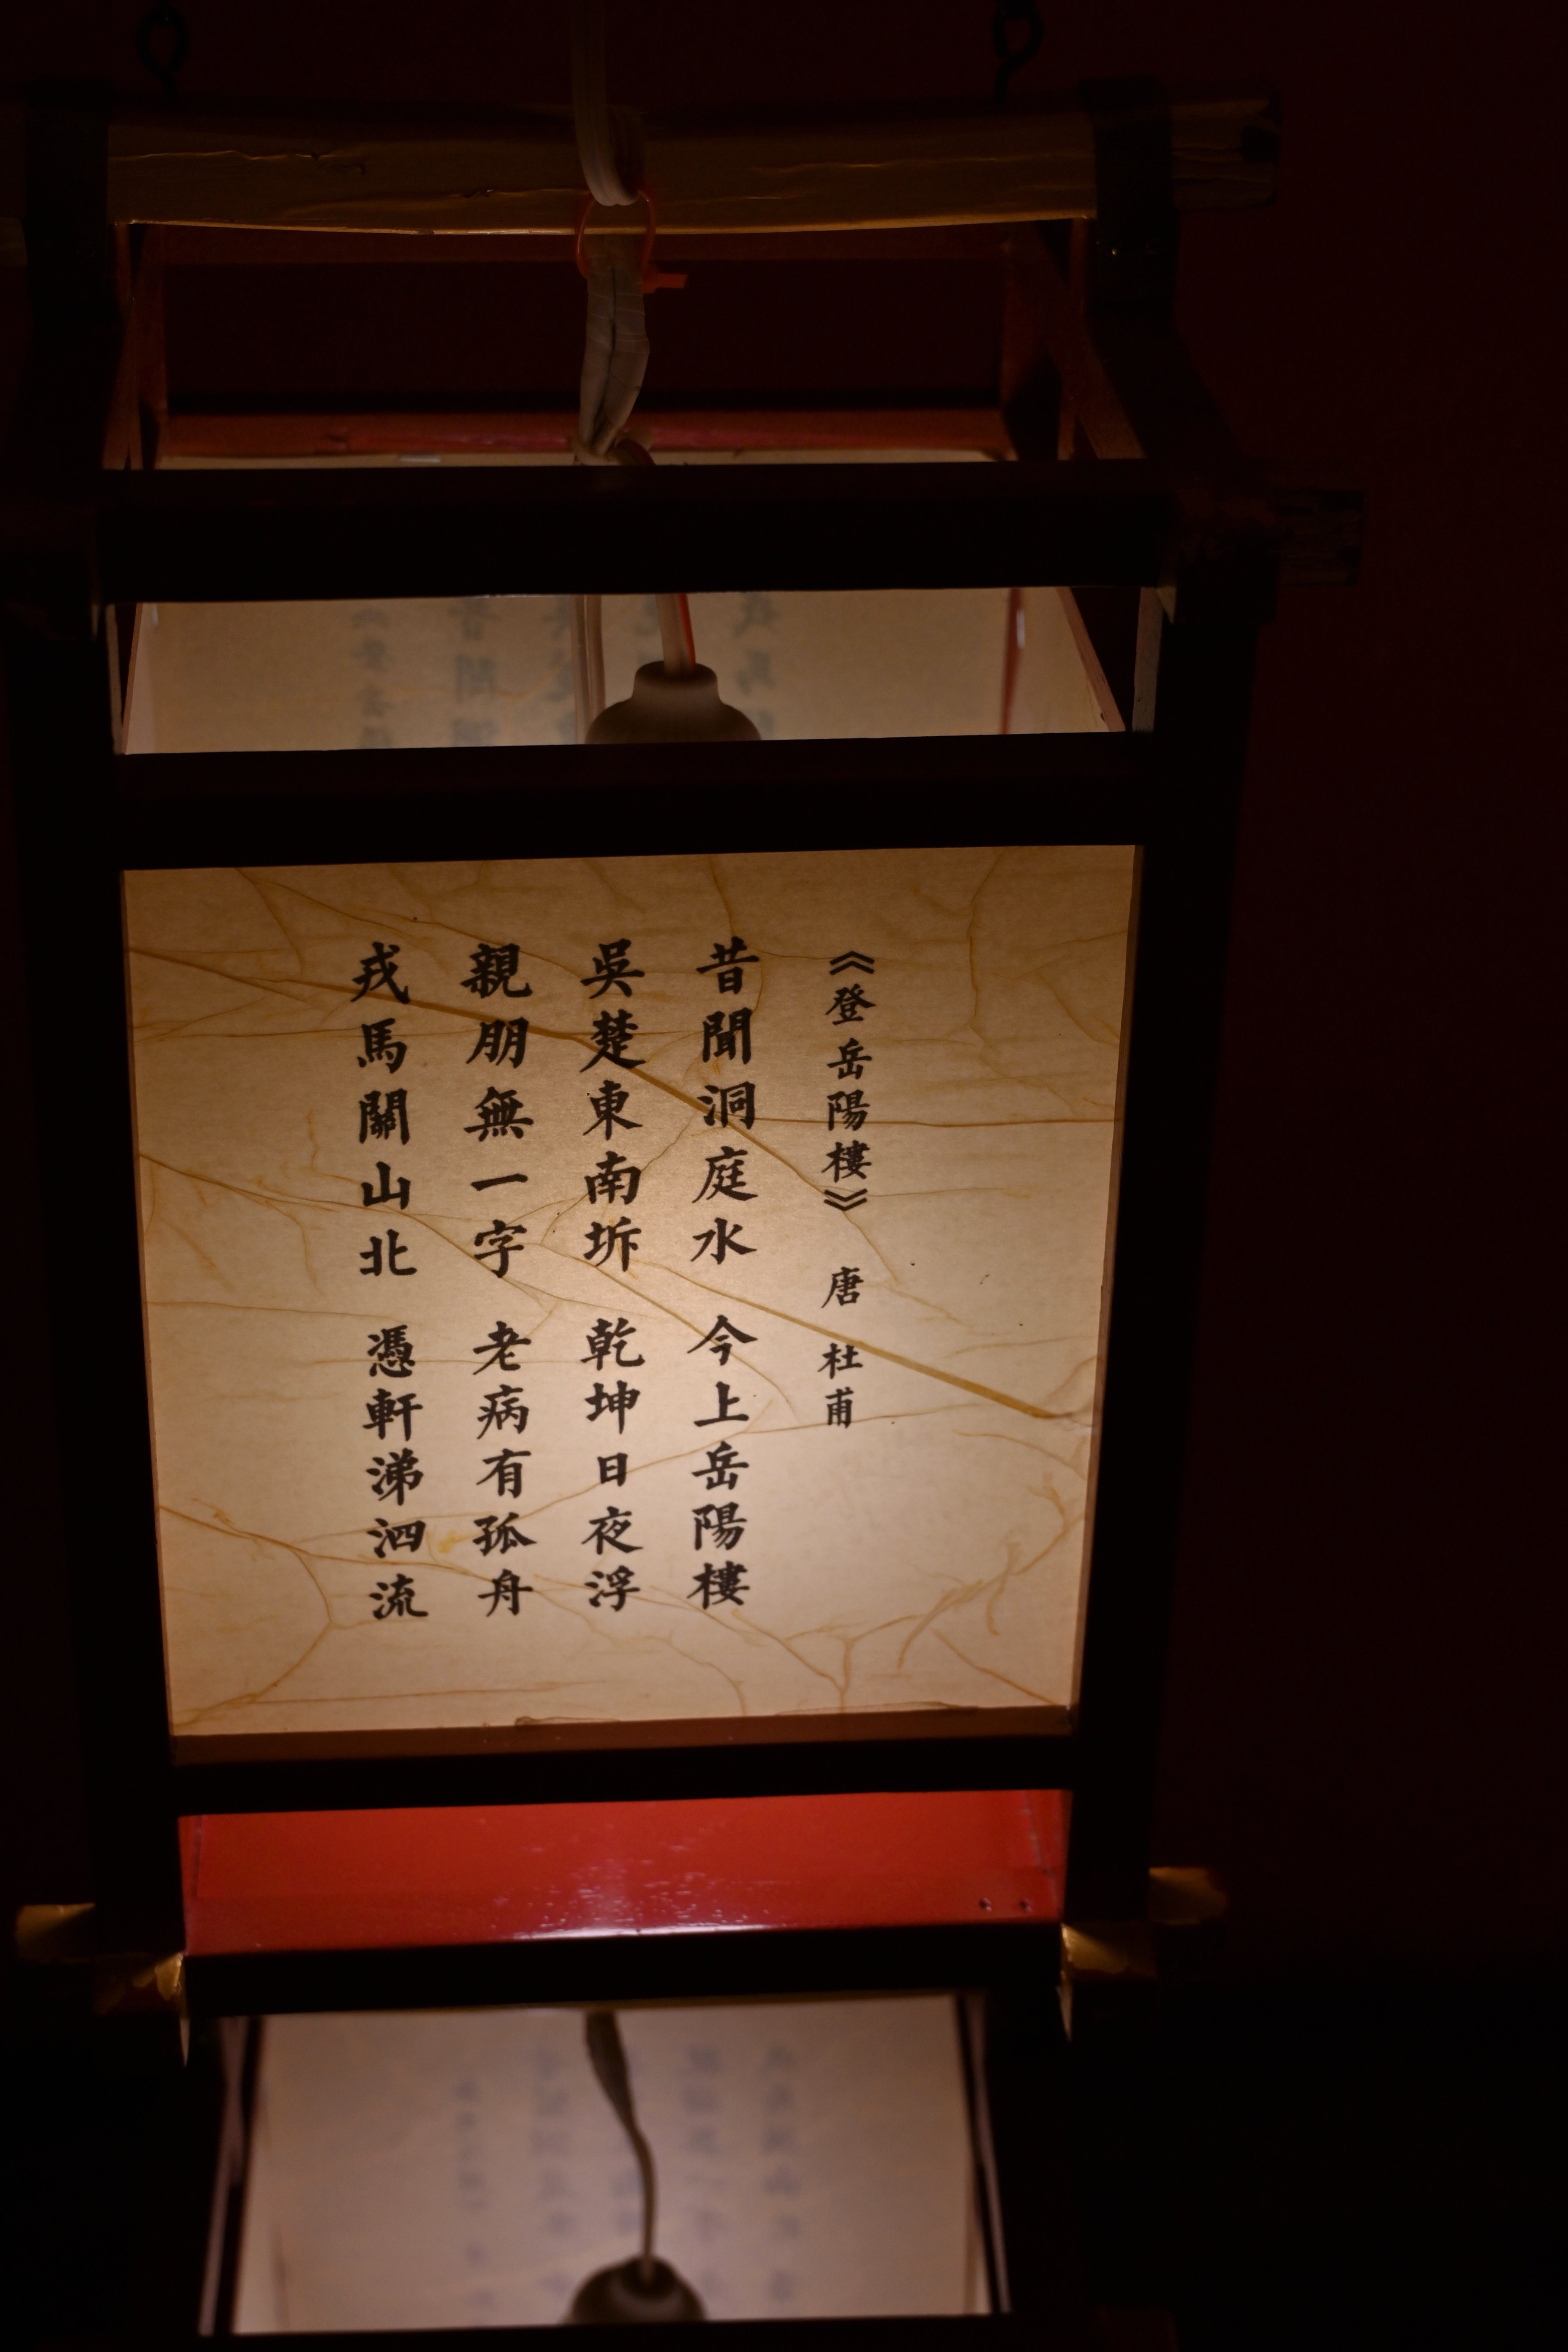 《登岳陽樓》 唐 杜甫
昔聞洞庭水 今上岳陽樓
吳楚東南坼 乾坤日夜浮
親朋無一字 老病有孤舟
戎馬關山北 憑軒涕泗流